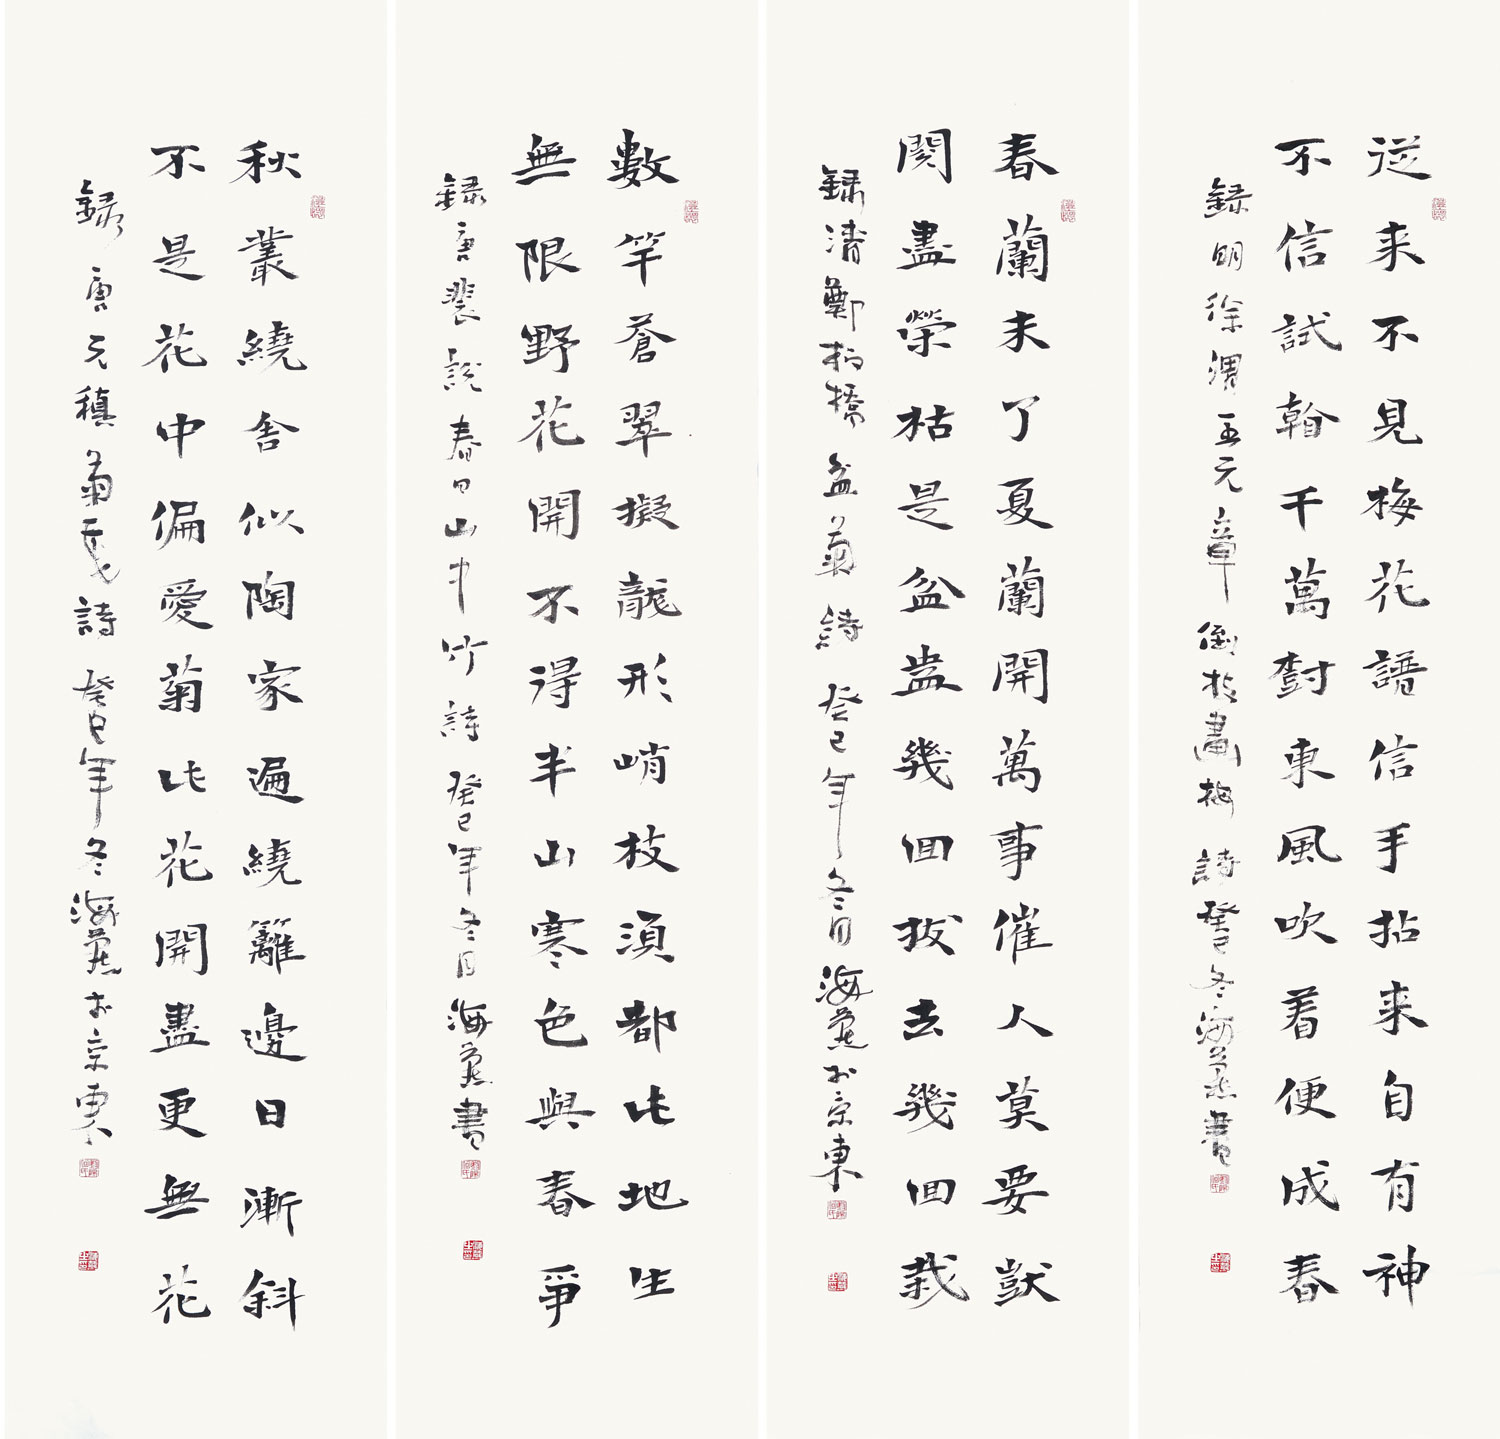 從来不見梅花譜信手拈来自有神
不信試看千萬樹東風吹着便成春
録明徐渭王元章倒枝畫梅詩癸巳冬海燕書
春蘭未了夏蘭開萬事催人莫要獃
閱盡榮枯是盆盎幾回拔去幾回栽
録清鄭板橋盆蘭詩癸巳年冬月海燕於京東
數竿蒼翠擬龍形峭枝須都此地生
無限野花開不得半山寒色與春爭
録唐裴說春日山中竹詩癸巳年冬月海燕書
秋叢繞舍似陶家遍繞籬邊日漸斜
不是花中偏愛菊此花開盡更無花
録唐元稹菊花詩癸巳年冬海燕於京東